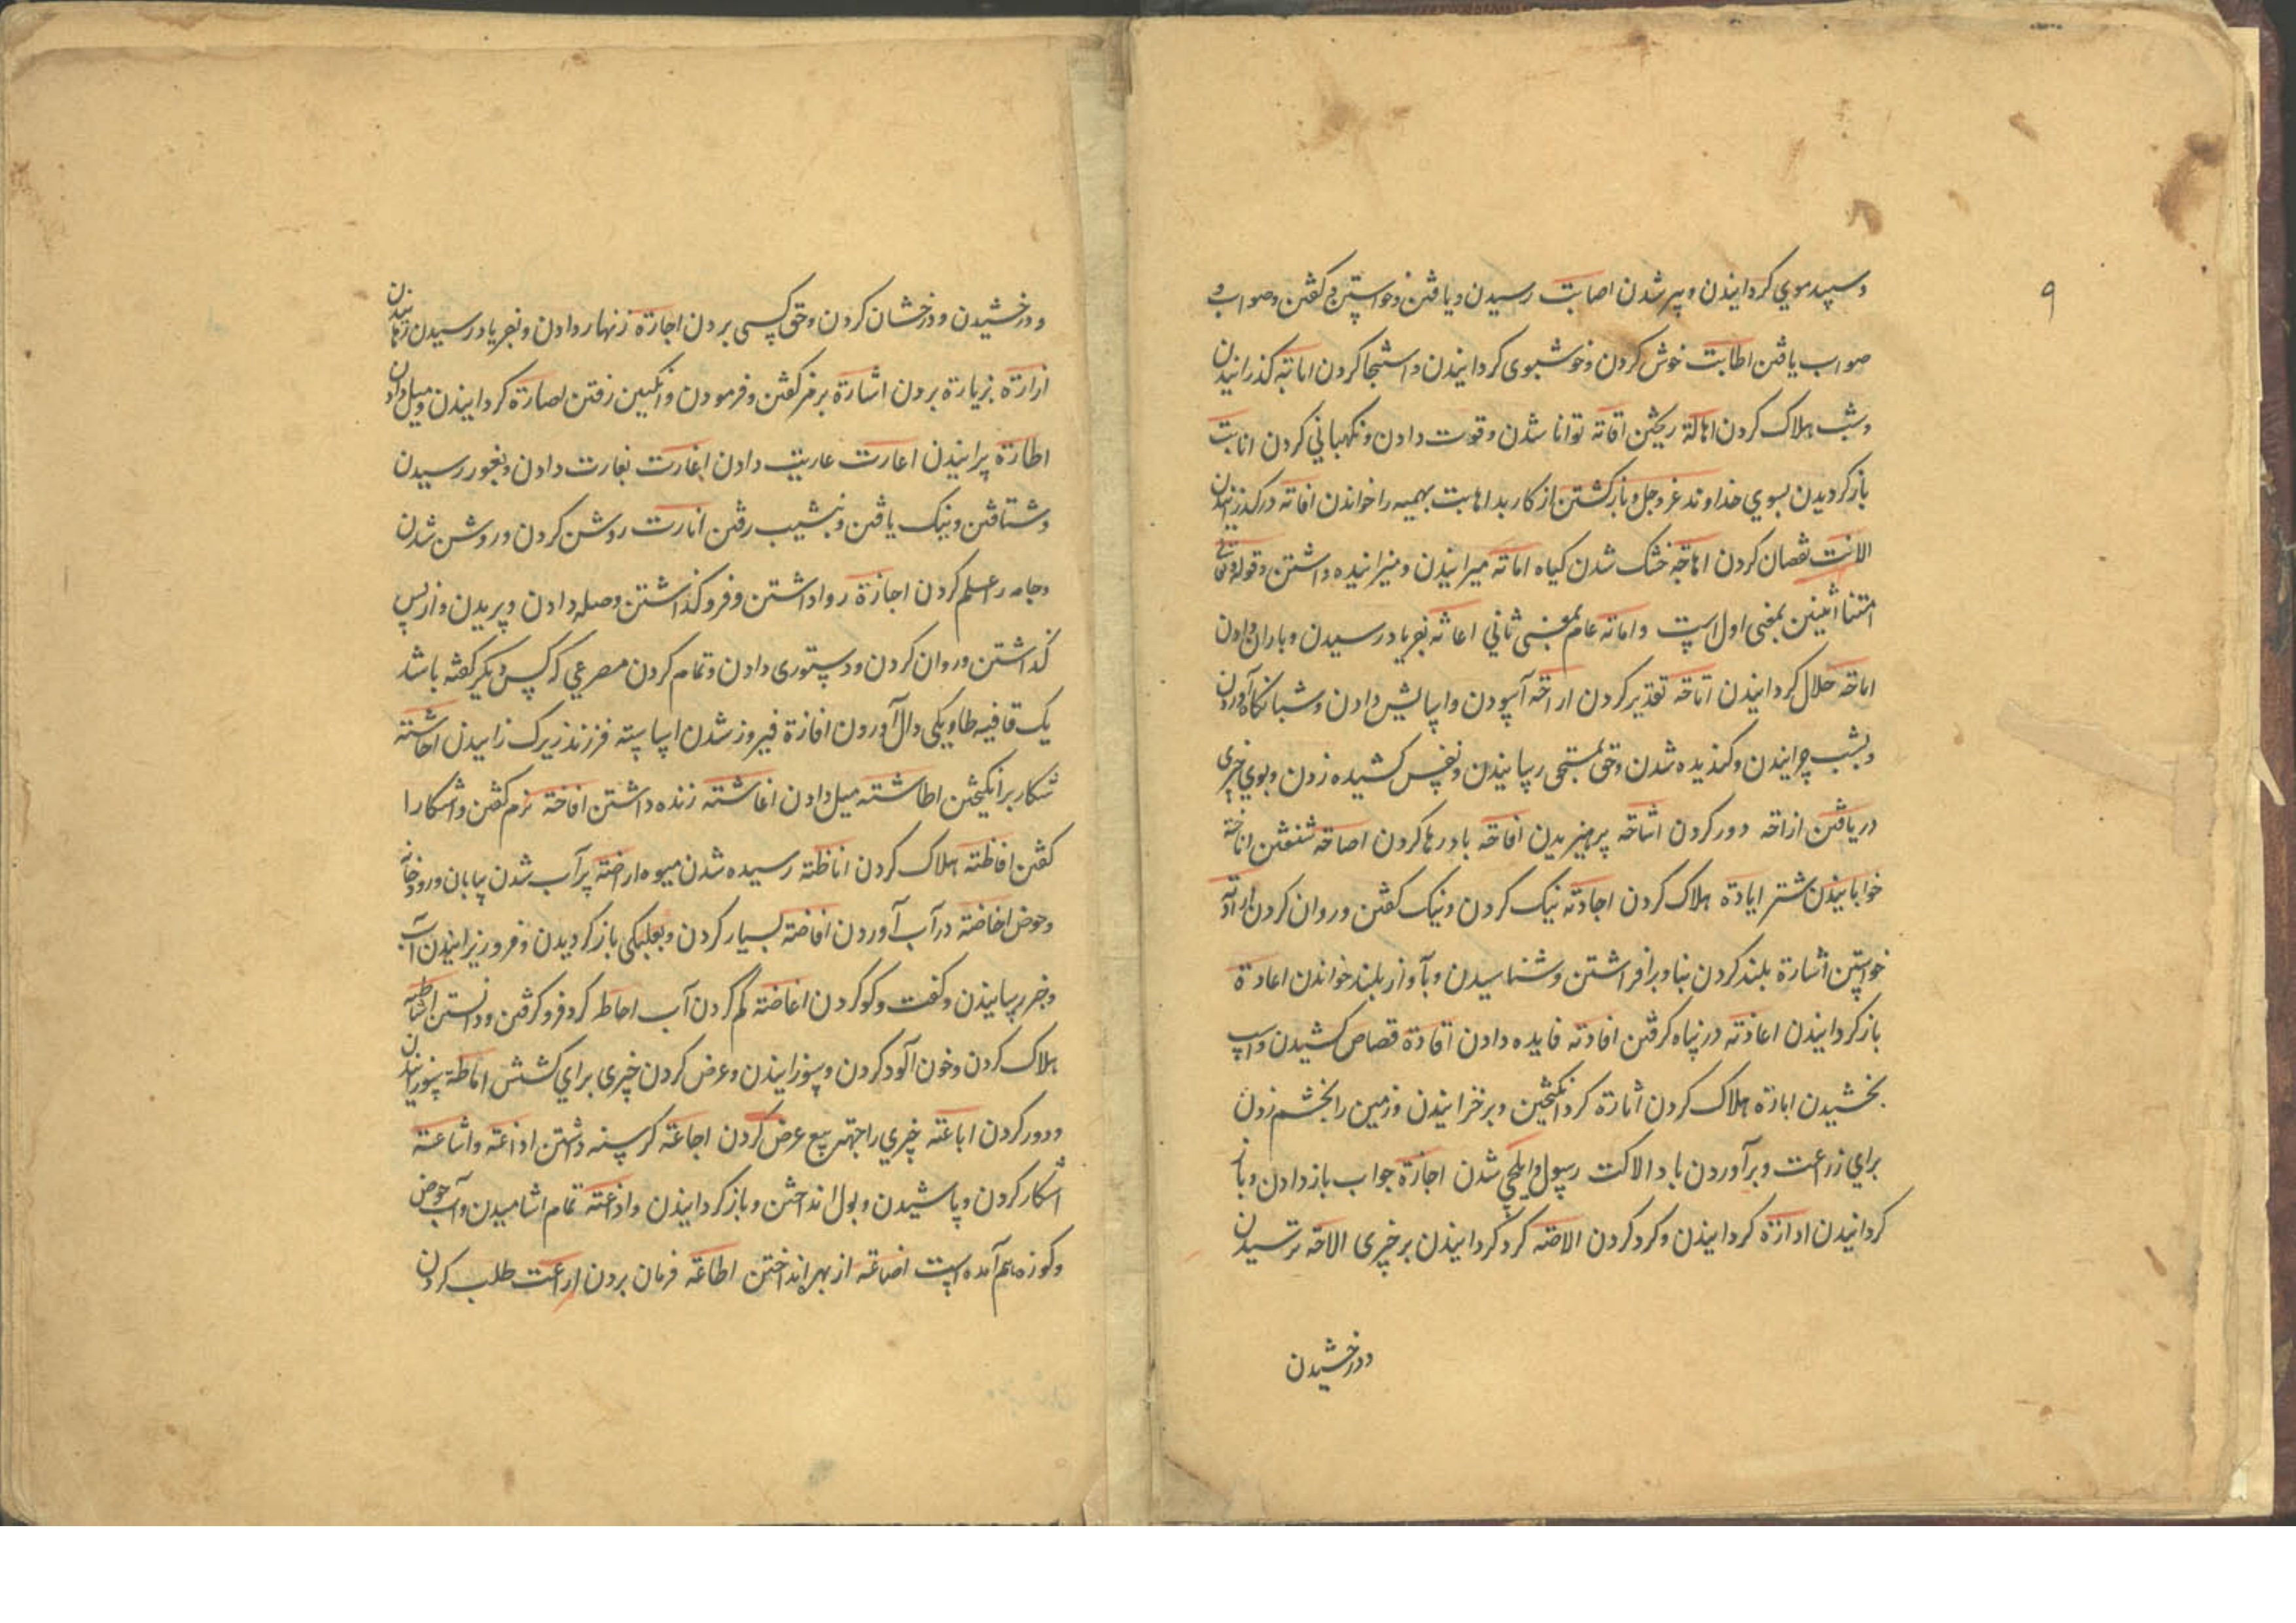 ۹
و سپید موی کردانیدن و پیر شدن اصابت رسیدن و یافتن و خواستن و کفتن و صواب و
صواب یافتن اطابت خوش کردن و خوشبوی کردانیدن و استنجا کردن اماتة کذرانیدن
و شب هلاک کردن اهالة ریختن اقاته توانا شدن و قوت دادن و نکهبانی کردن انابت
باز کردیدن بسوی خداوند عز و جل و باز کشتن از کار بد اهابت بهیمه را خواندن افاته درکذرانیدن
الانت نقصان کردن اهاجه خشک شدن کیاه اماته میرانیدن و میرانیده داشتن و قوله تعالی
امتنا اثنتین بمعنی اول است و اماته عام بمعنی ثانی اغاثه بفریاد رسیدن و باران دادن
اباحه حلال کردانیدن اتاحه تقدیر کردن اراحه آسودن و اسایش دادن و شبانکاه آوردن
و بشب چرانیدن و کندیده شدن و حق بمستحق رسانیدن و نفس کشیده زدن و بوی چیزی
دریافتن ازاحه دور کردن اشاحه پرهیزیدن افاحه باد رها کردن اصاخه شنفتن اناخة
خوابانیدن شتر ابادة هلاک کردن اجادته نیک کردن و نیک کفتن و روان کردن ارادة
خواستن اشادة بلند کردن بنا و برافراشتن و شناسیدن و بآواز بلند خواندن اعادة
باز کردانیدن اعاذته در پناه کرفتن افادته فایده دادن اقادة قصاص کشیدن و اسپ
بخشیدن ابارة هلاک کردن اثارة کرد انکیختن و برخزانیدن و زمین را بخشم زدن
برای زرعت و برآوردن باد الاکت رسول و ایلچی شدن اجازة جواب باز دادن و باز
کردانیدن ادارة کردانیدن و کرد کردن الاصته کرد کردانیدن بر چیزی الاحه ترسیدن
و درخشیدن
و درخشیدن و درخشان کردن و حق کسی بردن اجارة زنهار دادن و بفریاد رسیدن و رهانیدن
ازارة بزیارة بردن اشارة برمز کفتن و فرمودن و انکبین رفتن اصارة کردانیدن و میل دادن
اطارة پرانیدن اعارت عاریت دادن اغارت بغارت دادن و بغور رسیدن
و شتافتن و نیک یافتن و بنشیب رفتن انارت روشن کردن و روشن شدن
و جامه را علم کردن اجازة روا داشتن و فرو کذاشتن و صله دادن و بریدن و از پس
کذاشتن و روان کردن و دستوری دادن و تمام کردن مصرعی که کس دیکر کفته باشد
یک قافیه طا و یکی دال آوردن افازة فیروز شدن اساسته فرزند زیرک زاییدن احاشته
شکار برانکیختن اطاشته میل دادن اعاشته زنده داشتن افاخته نرم کفتن و اشکارا
کفتن افاظته هلاک کردن اناظته رسیده شدن میوه اراضته پر آب شدن بیابان و رودخانه
و حوض اخاضته در آب آوردن افاضته بسیار کردن و بجلبکی باز کردیدن و فرو ریزانیدن آب
و خبر رسانیدن و کفت و کو کردن اغاضته کم کردن آب احاطه کرد فرو کرفتن و دانستن اشاطته
هلاک کردن و خون آلود کردن و سوزانیدن و عرض کردن چیزی برای کشش اماطة سوزانیدن
و دور کردن اباعته چیزی را جهت بیع عرض کردن اجاعته کرسنه داشتن اذاعته و اشاعته
اشکار کردن و پاشیدن و بول انداختن و باز کردانیدن و اذاعته تمام اشامیدن و آب حوض
و کوزه هم آمده است اضاعته از بهر انداختن اطاعته فرمان بردن اراعت طلب کردن